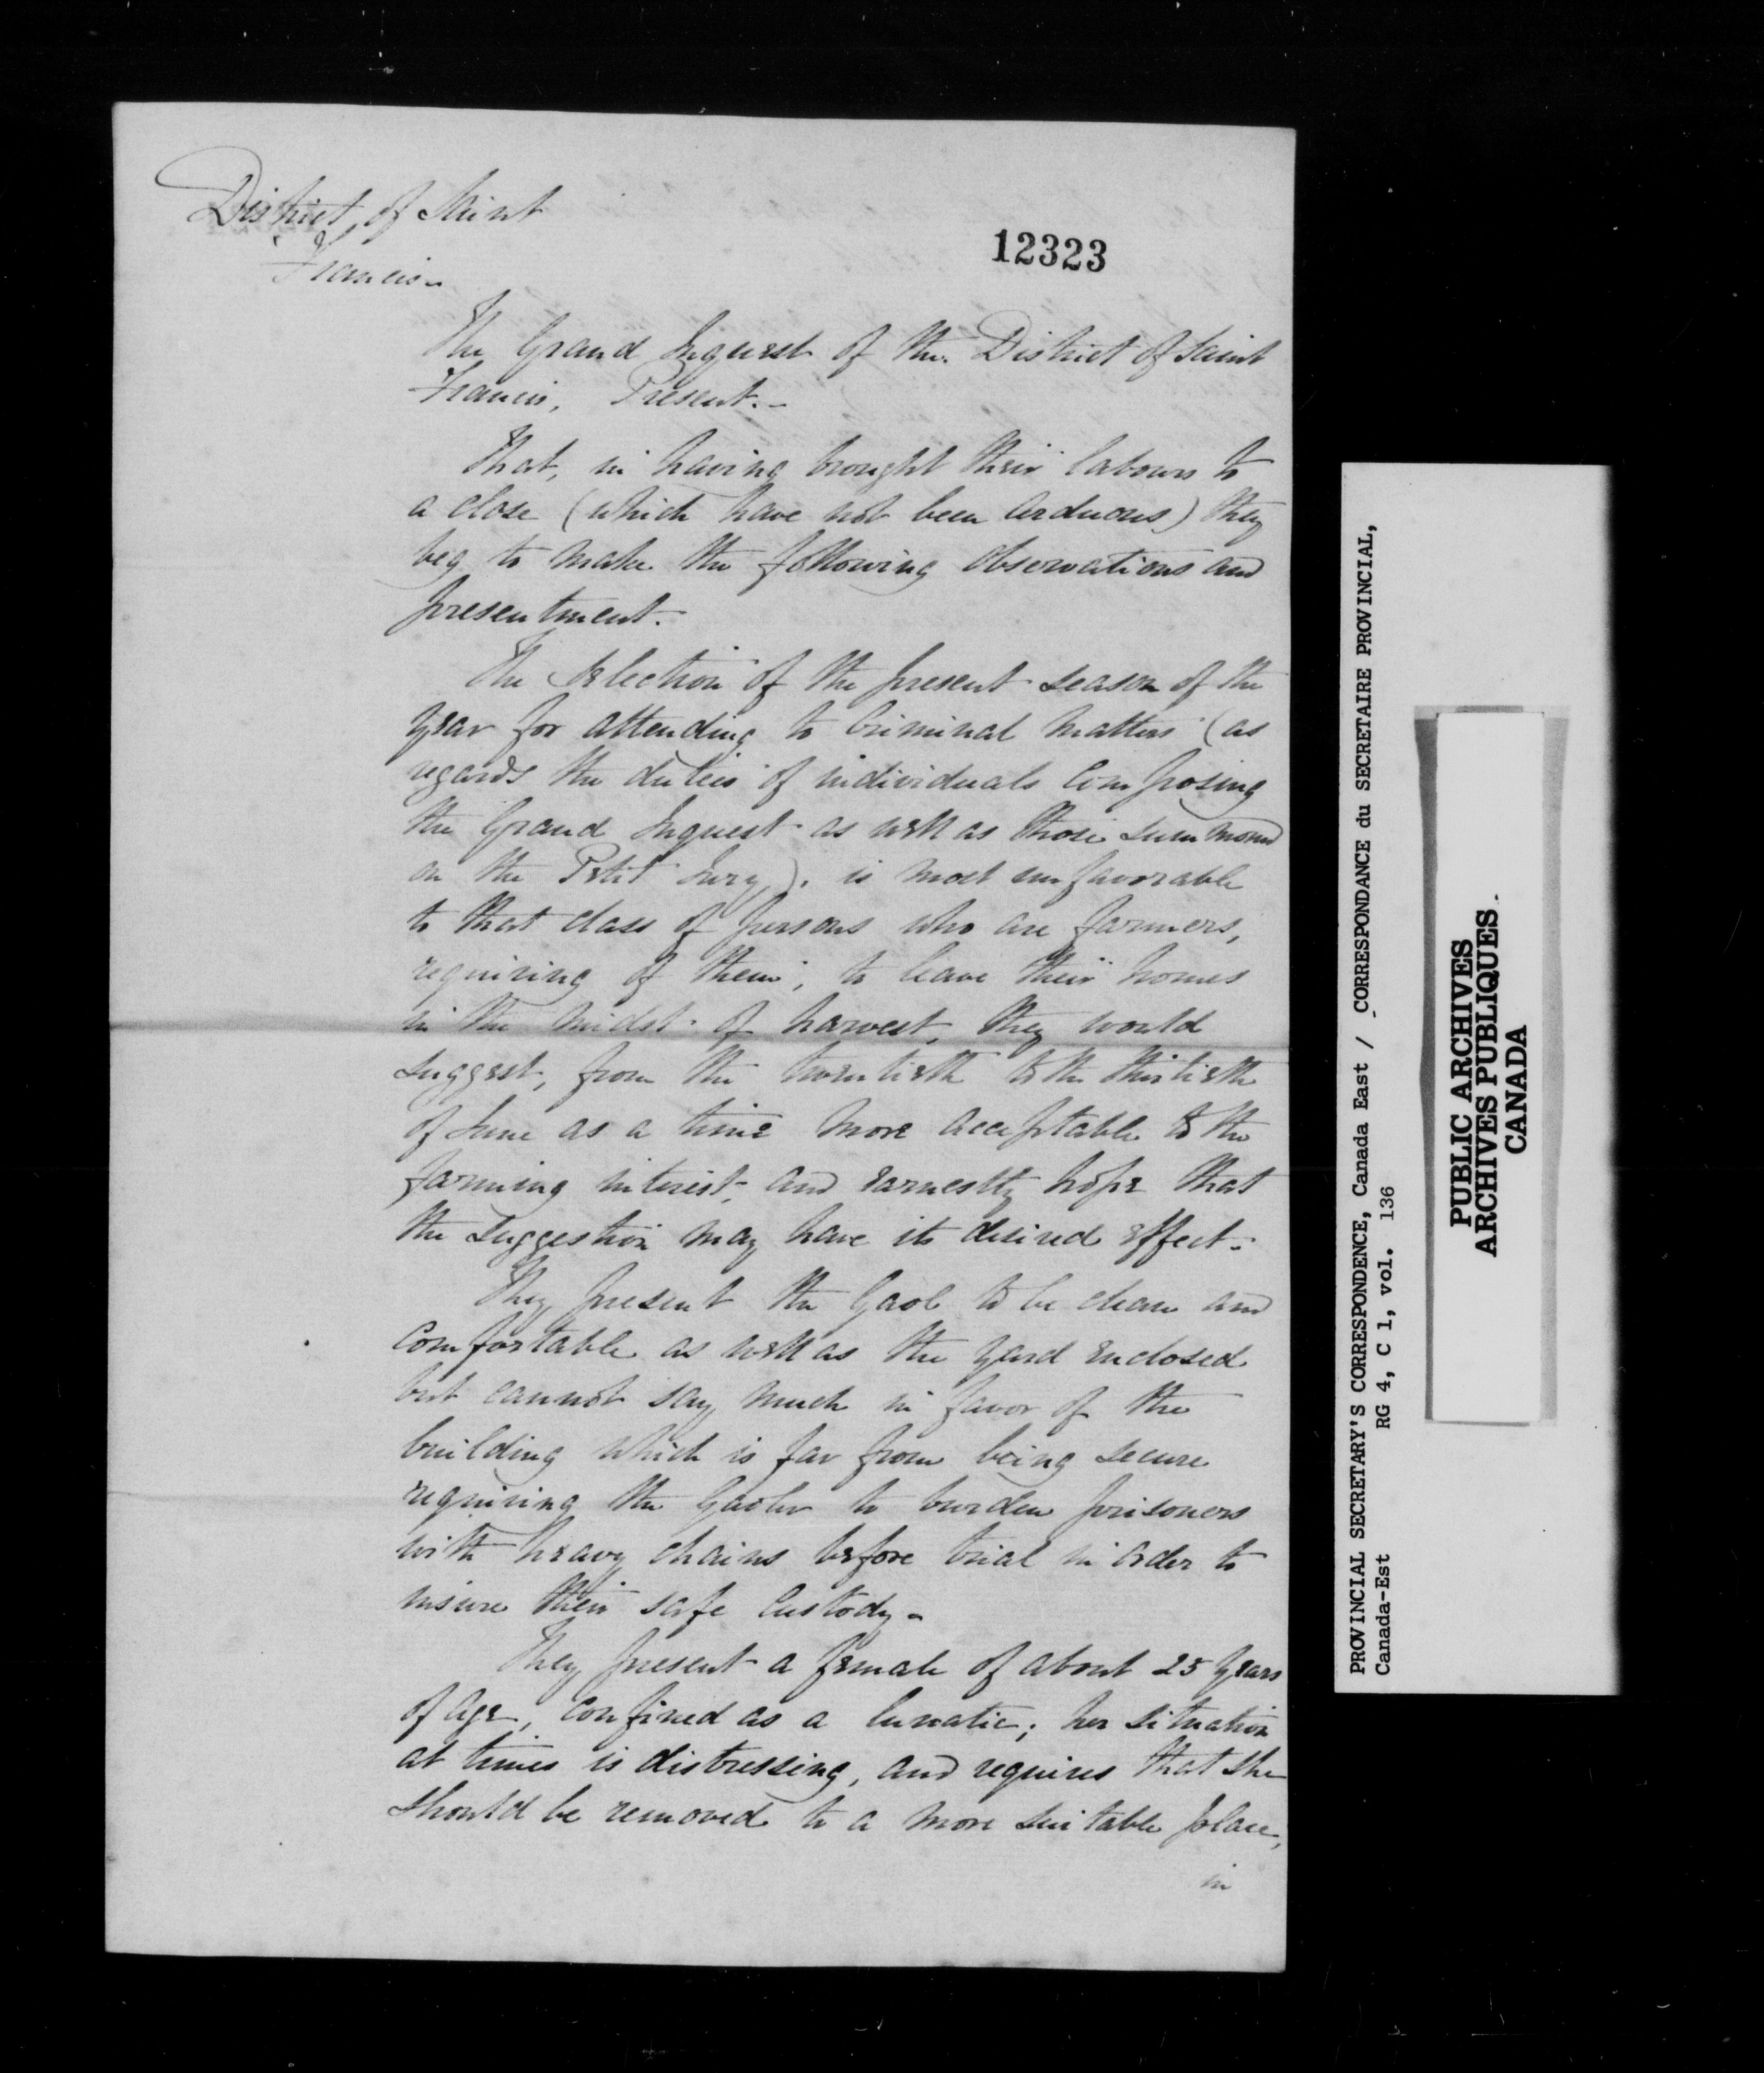 District of Saint
Francis.
12323
The Grand Inquest of the District of Saint
Francis, Present.-
That, in having brought their labours to
a close (which have not been arduous) they
beg to make the following observations and
presentment.
The Selection of the present season of the
year for attending to Criminal matters (as
regards the duties of individuals Composing
the Grand Inquest as well as those summoned
on the Petit Jury), is most unfavorable
to that class of persons who are farmers,
requiring of them, to leave their homes
in the midst of harvest, they would
suggest, from the twentieth to the thirtieth
of June as a time more acceptable to the
farming interest, and earnestly hope that
the suggestion may have its desired effect.
They present the Gaol to be clean and
Comfortable as well as the yard enclosed
but cannot say much in favor of the
building which is far from being secure
requiring the Gaoler to burden prisoners
with heavy chains before trial in order to
insure their safe Custody.
They present a female of about 25 years
of age, confined as a lunatic; her situation
at times is distressing, and requires that she
should be removed to a more suitable place,
in
PROVINCIAL SECRETARY'S CORRESPONDENCE, Canada East / CORRESPONDANCE du SECRETAIRE PROVINCIAL,
Canada-Est RG 4, C 1, vol. 136
PUBLIC ARCHIVES
ARCHIVES PUBLIQUES
CANADA